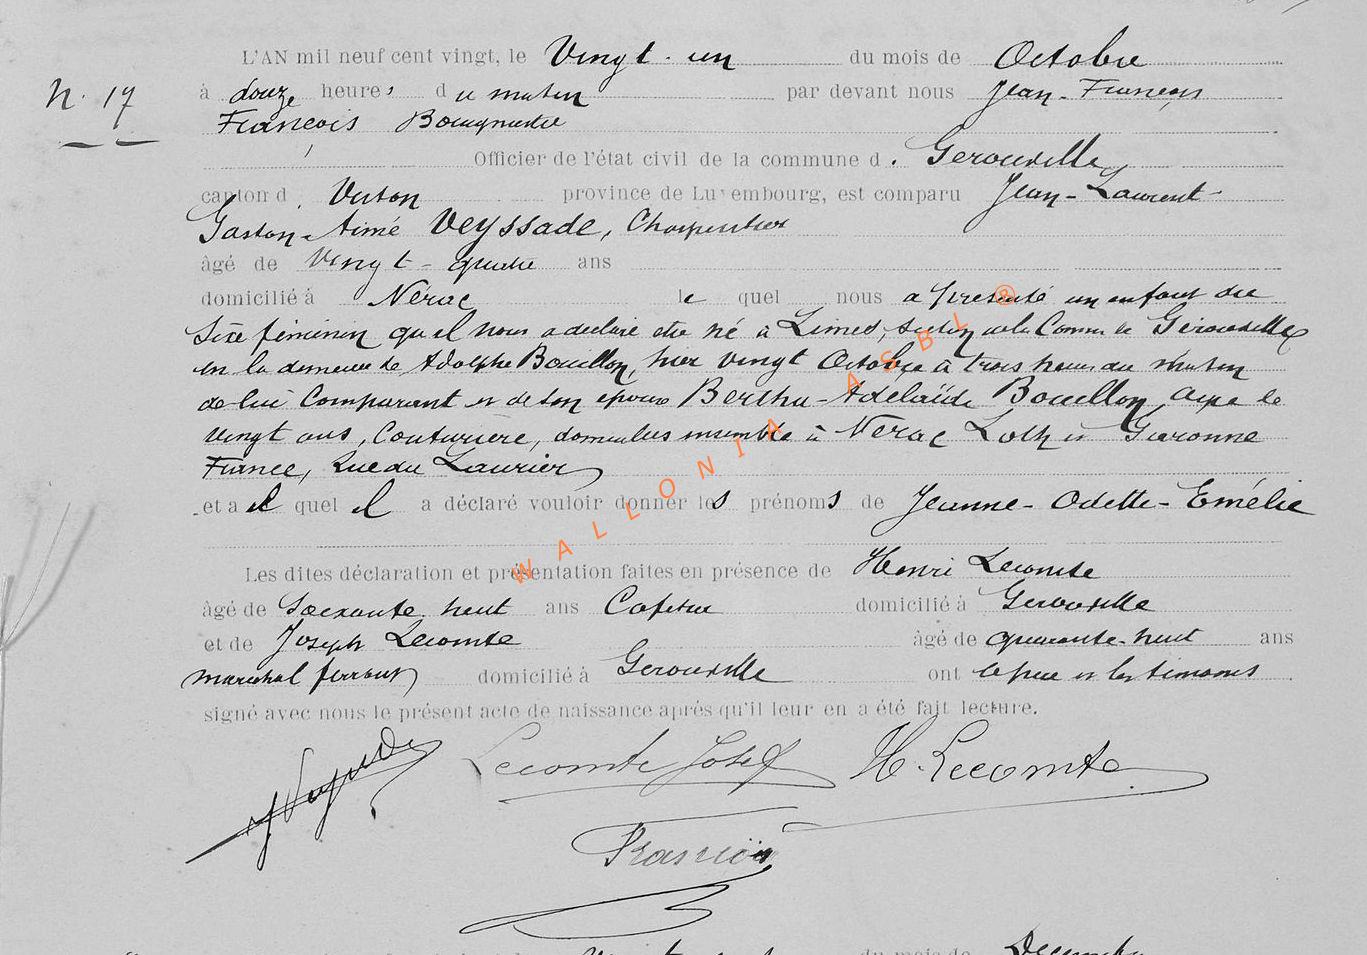 L'AN mil neuf cent vingt, le Vingt-un du mois de Octobre
N. 17
à douze heures du matin par devant nous Jean-François
François
Officier de l'état civil de la commune d. Gerouville
canton d. Virton province de Luxembourg, est comparu Jean-Laurent-
Gaston-Aimé Veyssade, Charpentier
âgé de Vingt-quatre ans
domicilié à Nérac le quel nous a présenté un enfant du
sexe féminin qu'il nous a déclaré être né à Limes, section de la Comm. de Gérouville
en la demeure de Adolphe Bouillon, hier vingt Octobre à trois heures du matin
de lui Comparant et de son épouse Berthe-Adélaïde Bouillon, âgée de
vingt ans, Couturière, domiciliés ensemble à Nérac Loth et Garonne
France, Rue du Laurier
et a il quel il a déclaré vouloir donner les prénoms de Jeanne-Odette-Emélie
Les dites déclaration et présentation faites en présence de Henri Lecomte
âgé de Soixante huit ans domicilié à Gerouville
et de Joseph Lecomte âgé de quarante-huit ans
maréchal ferrant domicilié à Gerouville ont le père et les témoins
signé avec nous le présent acte de naissance après qu'il leur en a été fait lecture.
Lecomte Josef H. Lecomte
François
du mois de Decembre
WALLONIA ASBL ®